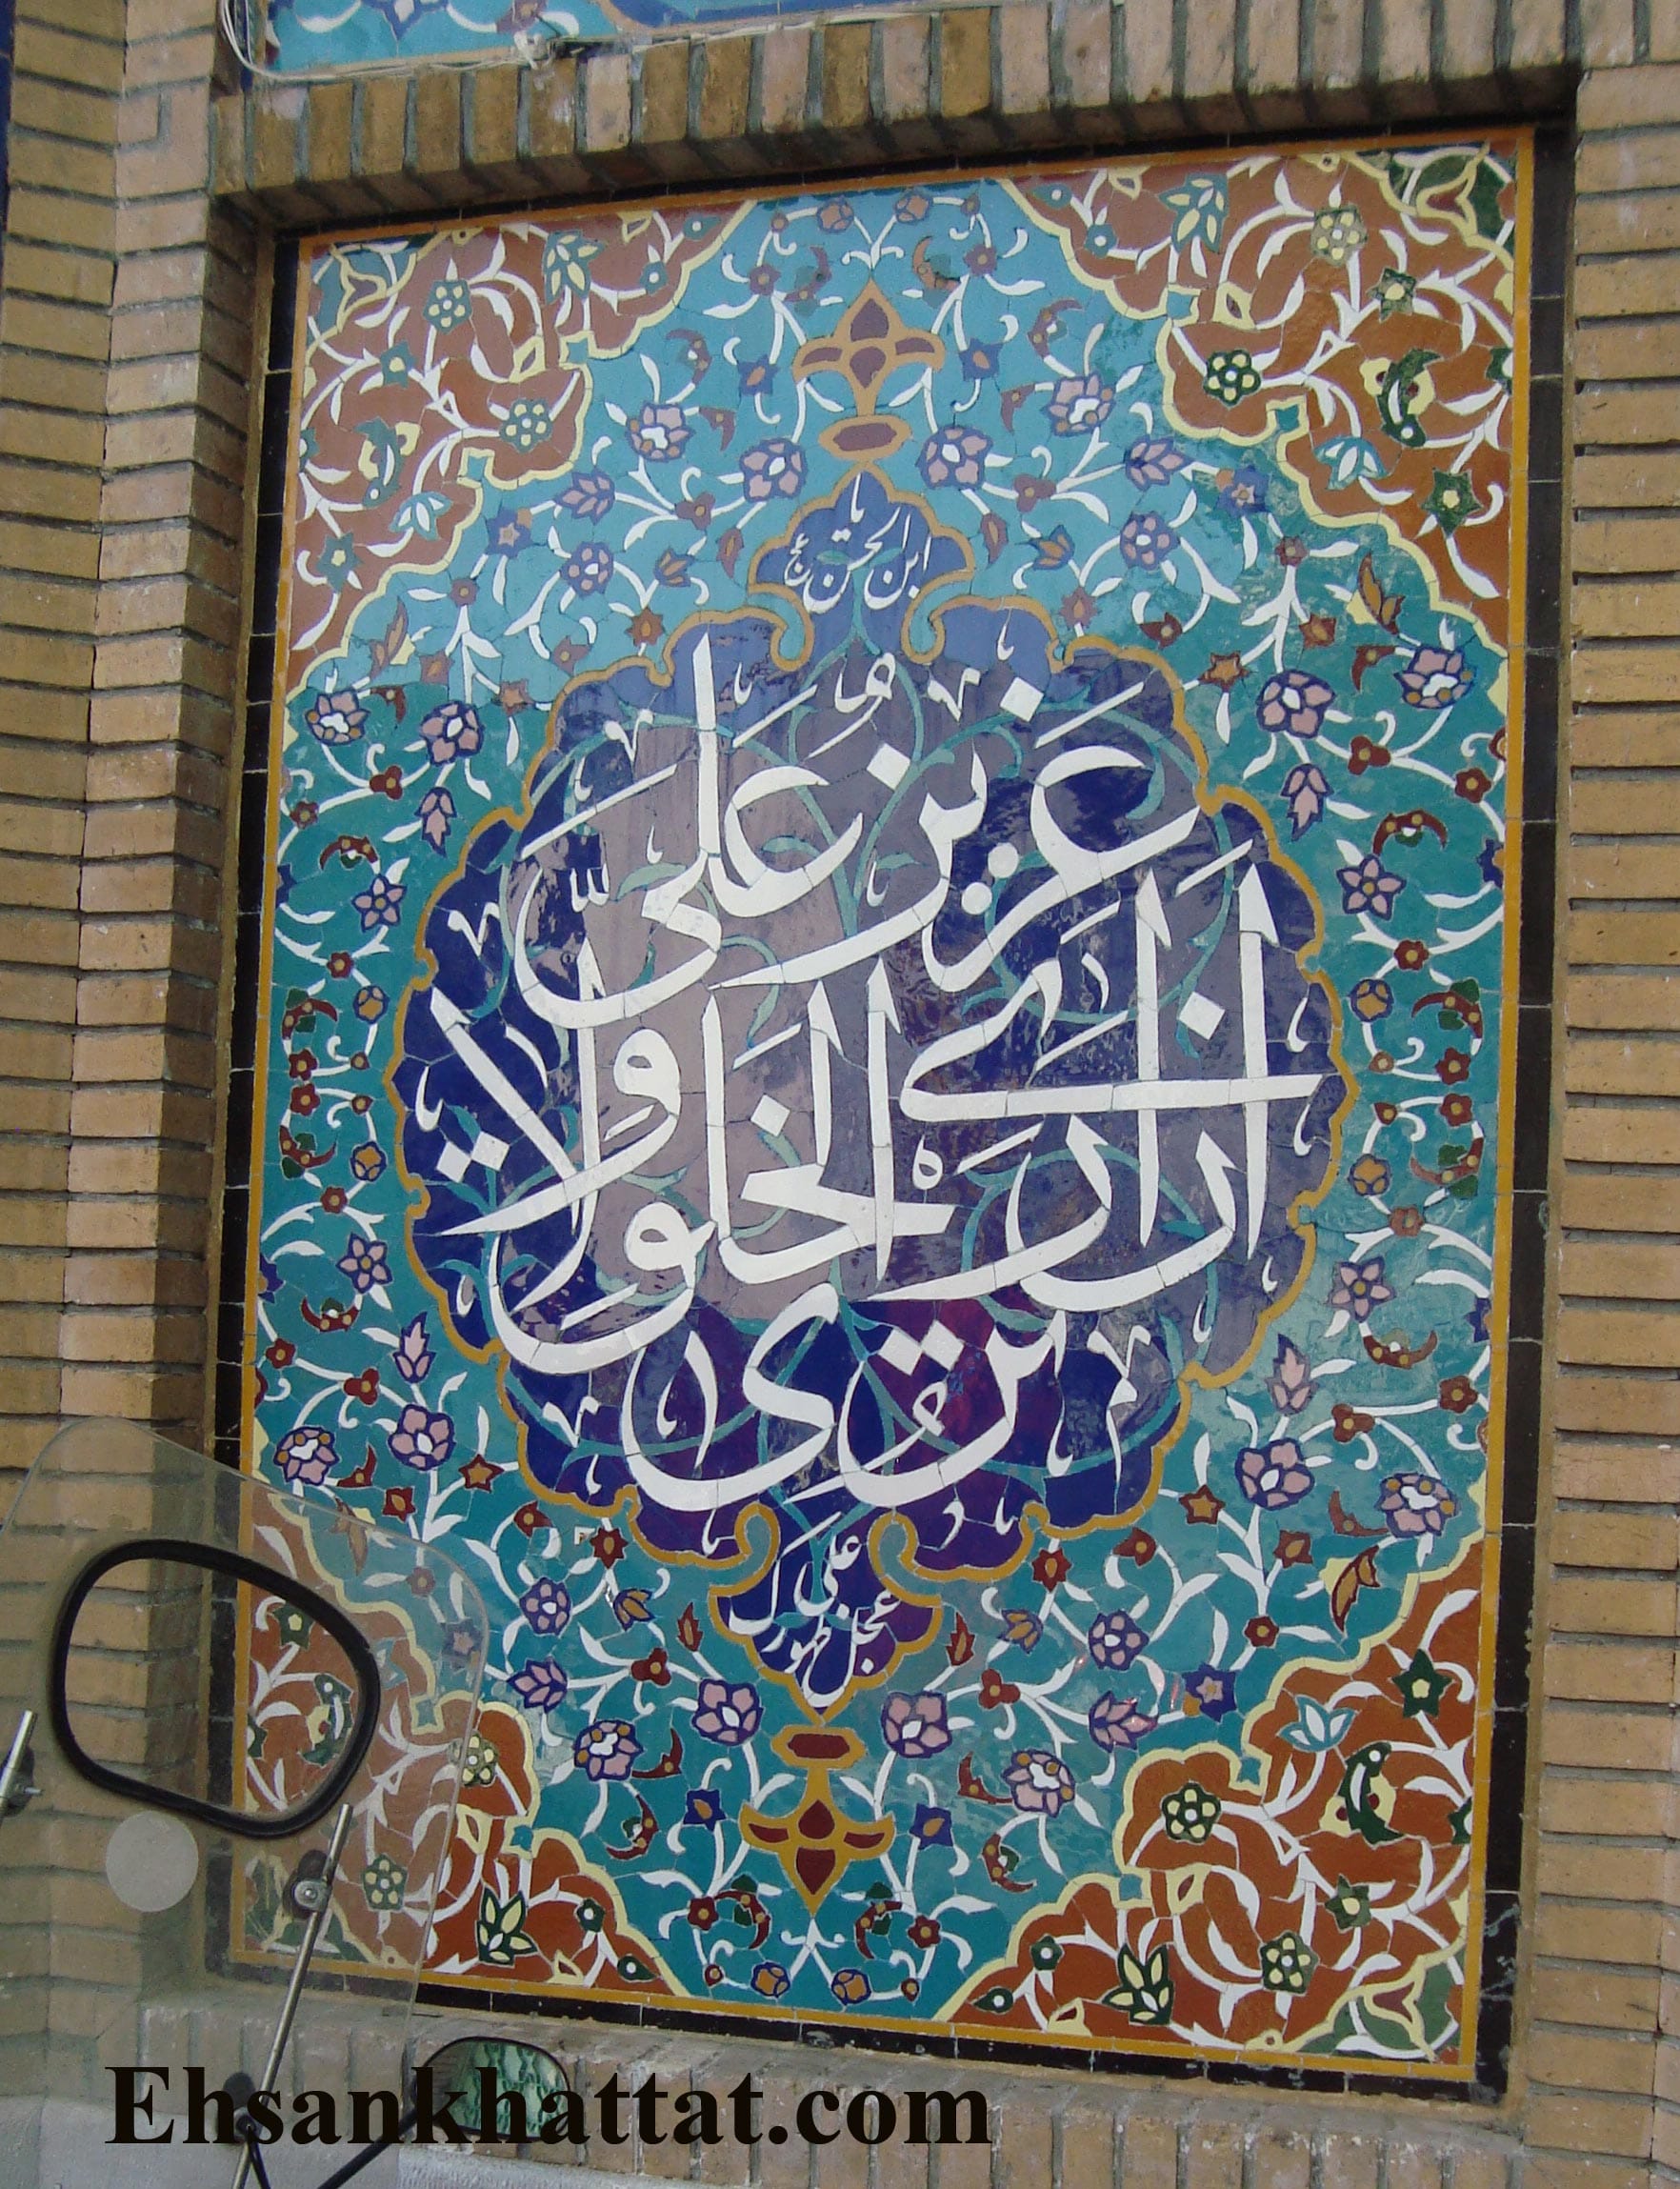 یا
ابن الحسن عج
عزیز علی
ان اری الخلق ولا
تری
عجل علی ظهورک
Ehsankhattat.com